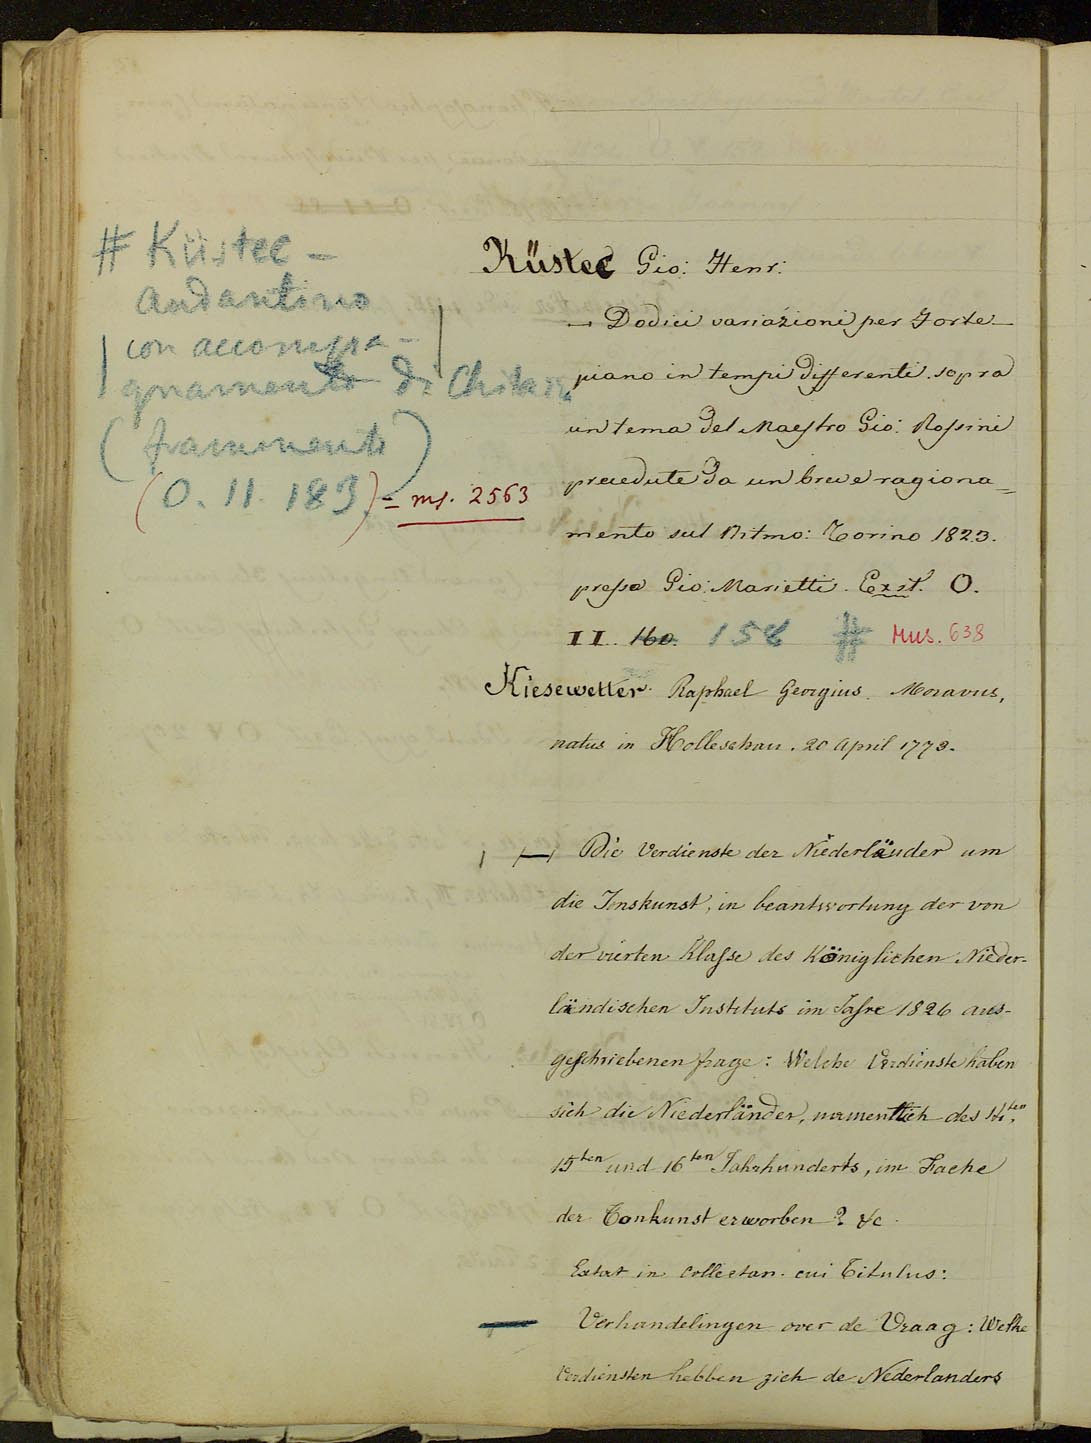 # Küster –
Andantino
con accompa-
gnamento di Chitarra
(frammento)
(O. II. 183) = ms. 2563
Küster Gio: Henr:
— Dodici variazioni per Forte-
piano in tempi differenti sopra
un tema del Maestro Gio: Rossini
precedute da un breve ragiona=
mento sul Ritmo: Torino 1823.
presso Gio: Marietti. Exst. O.
II. 160. 158 # Mus. 638
Kiesewetter Raphael Georgius Moravus,
natus in Holleschau. 20 April 1773.
— Die Verdienste der Niederländer um
die Tonskunst, in beantwortung der von
der vierten Klasse des Königlichen Nieder-
ländischen Instituts im Jahre 1826 aus-
geschriebenen frage: Welche Verdienste haben
sich die Niederländer, namentlich des 14ten,
15ten und 16ten Jahrhunderts, im Fache
der Tonkunst erworben? &c.
Extat in collectan. cui Titulus:
— Verhandelingen over de Vraag: Welke
Verdiensten hebben zich de Nederlanders